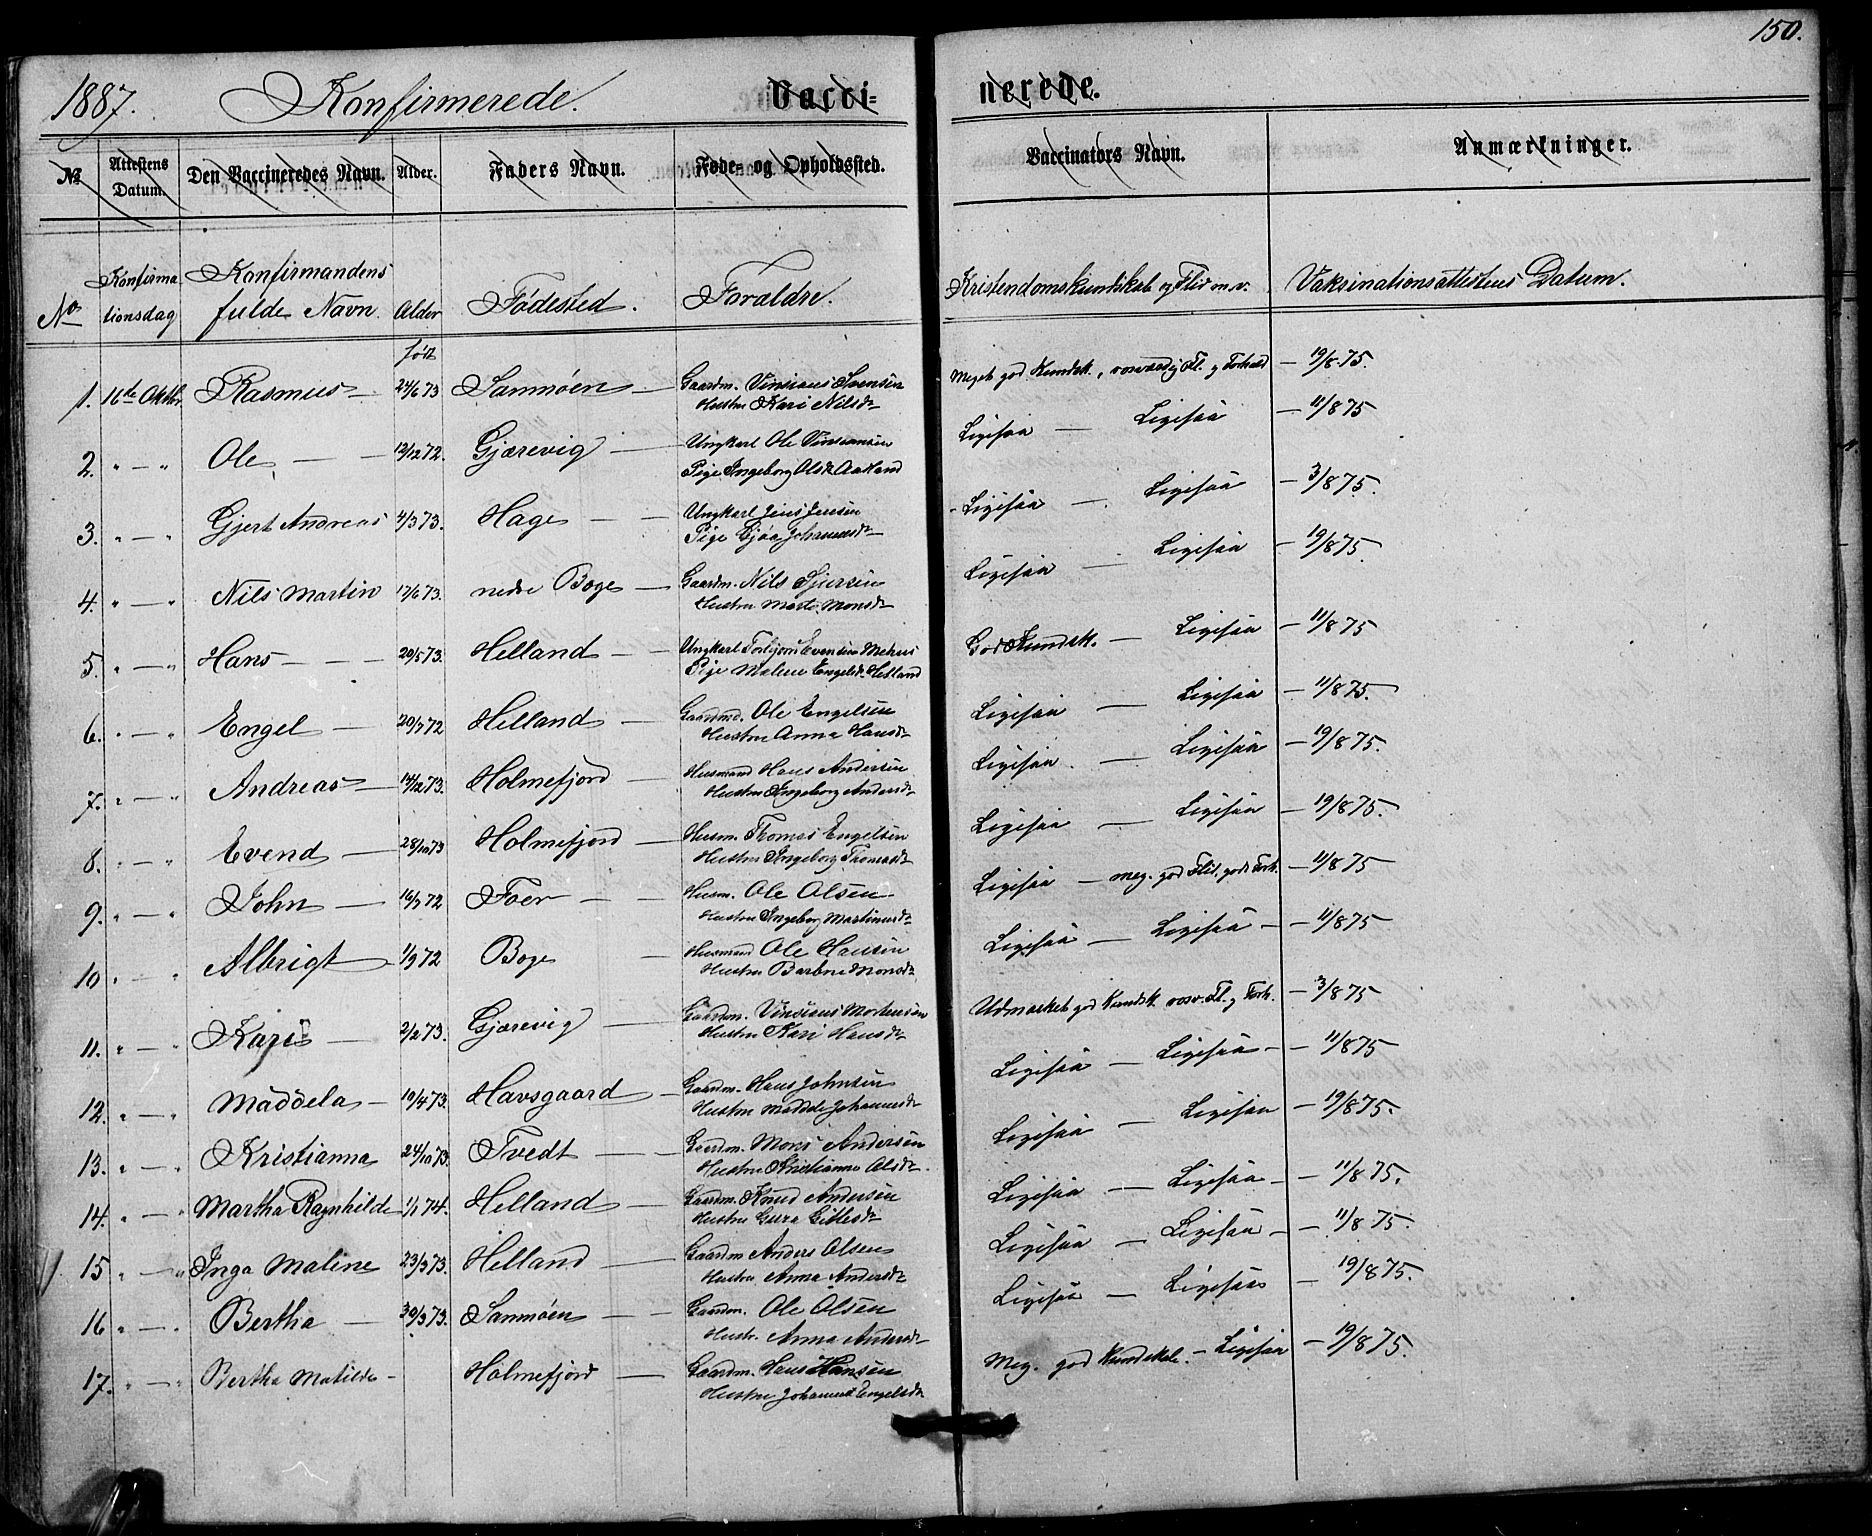 150.
1887. Konfirmerede. Vacci= nerede.
№ Attestens Datum. Den Vaccineredes Navn. Alder. Faders Navn. Føde- og Opholdssted. Vaccinators Navn. Anmærkninger.
No Konfirmationsdag Konfirmandens fulde Navn Alder Fødested. Forældre. Kristendomskundskab og Flid m.v. Vaksinationsattestens Datum.
født
1. 16de Oktbr. Rasmus — 24/6 73 Sammøen — Gaardm. Vinsians Svensen Meget god Kundsk., rosværdig Fl. og Forhold — 19/8 75.
Hustru Kari Nilsdr
2. " — " Ole — 12/12 72. Gjærevig — Ungkarl Ole Vinsiansen Ligesaa — Ligesaa — 11/8 75
Pige Ingeborg Olsdr Aasland
3. " — " Gjert Andreas 4/3 73. Hage — Ungkarl Jens Jensen Ligesaa — Ligesaa — 3/8 75.
Pige Gjøa Johannesdr
4. " — " Nils Martin 17/6 73. nedre Boge — Gaardm. Nils Sjursen Ligesaa — Ligesaa — 19/8 75
Hustru Marte Monsdr
5. " — " Hans — 20/5 73. Helland — Ungkarl Torbjørn Evensen Mehus God Kundsk. — Ligesaa — 11/8 75
Pige Malene Engelsdr Helland
6. " — " Engel — 20/7 72 Helland — Gaardmd. Ole Engelsen Ligesaa — Ligesaa — 11/8 75.
Hustru Anna Hansdr
7. " — " Andreas — 14/12 73. Holmefjord — Husmand Hans Andersen Ligesaa — Ligesaa — 19/8 75.
Hustru Ingeborg Andersdr
8. " — " Evend — 28/10 73 Holmefjord — Husm. Thomas Engelsen Ligesaa — Ligesaa — 19/8 75.
Hustru Ingeborg Thomasdr
9. " — " John — 16/7 72 Foer — Husm. Ole Olsen Ligesaa — meg. god Flid, godt Forh. — 11/8 75
Hustru Ingeborg Martinusdr
10 " " Albrigt 1/9 72 Boge — Husmand Ole Hansen Ligesaa — Ligesaa — 11/8 75
Hustru Barbra Monsdr
11. " — " Kari — 2/2 73. Gjærevig — Gaardm. Vinsians Mortensen Udmærket god Kundsk. rosv. Fl. og Forh. — 3/8 75
Hustru Kari Hansdr
12. " — " Maddela — 10/4 73. Havsgaard — Gaardm. Hans Johnsen Ligesaa — Ligesaa — 11/8 75
Hustru Maddele Johannesdr
13. " — " Kristianna 24/10 73. Tvedt — Gaardm. Mons Andersen Ligesaa — Ligesaa — 19/8 75.
Hustru Kristianna Olsdr.
14. " — " Martha Ragnhilde 1/1 74. Helland — Gaardm. Knud Andersen Ligesaa — Ligesaa — 11/8 75.
Hustru Gura Gitlesdr
15 " — " Inga Maline 23/3 73. Helland — Gaardm Anders Olsen Ligesaa — Ligesaa — 11/8 75.
Hustru Anna Andersdr
16 " — " Bertha — 30/3 73. Sammøen — Gaardm. Ole Olsen Ligesaa — Ligesaa — 19/8 75.
Hustr. Anna Andersdr
17. " — " Bertha Matilde — Holmefjord — Gaardm. Hans Hansen Meg. god Kundskab. — Ligesaa — 19/8 75.
Hustru Johanna Engelsdr